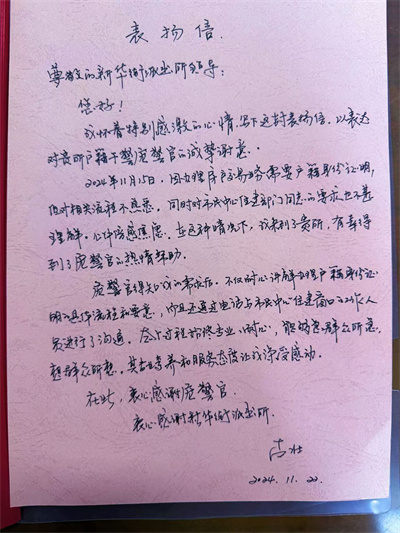 表扬信
尊敬的新华街派出所领导：
您好！
我怀着特别感激的心情，写下这封表扬信，以表达
对贵所户籍干警庞警官的诚挚谢意。
2024年11月15日，因办理房产交易业务需要户籍身份证明，
但对相关流程不熟悉，同时对市民中心住建部门同志的要求也不甚
理解，心中倍感焦虑。在这种情况下，我来到了贵所，有幸得
到了庞警官的热情帮助。
庞警官得知我的需求后，不仅耐心讲解办理户籍身份证
明的具体流程和要求，而且还通过电话与市民中心住建窗口的工作人
员进行了沟通，整个过程始终专业、耐心，能够急群众所急，
想群众所想，其专业素养和服务态度让我深受感动。
在此，衷心感谢庞警官。
衷心感谢新华街派出所。
2024.11.22.